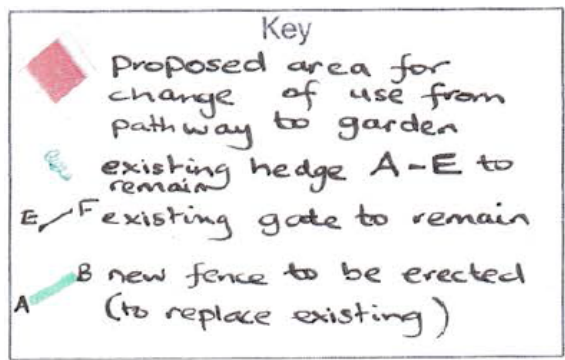 Key
Proposed area for
change of use from
pathway to garden
existing hedge A-E to
remain
E F existing gate to remain
A B new fence to be erected
(to replace existing)